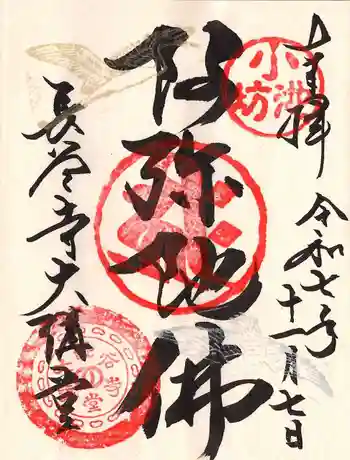 奉拝
令和七年十一月七日
阿弥陀佛
長谷寺大講堂
小池坊